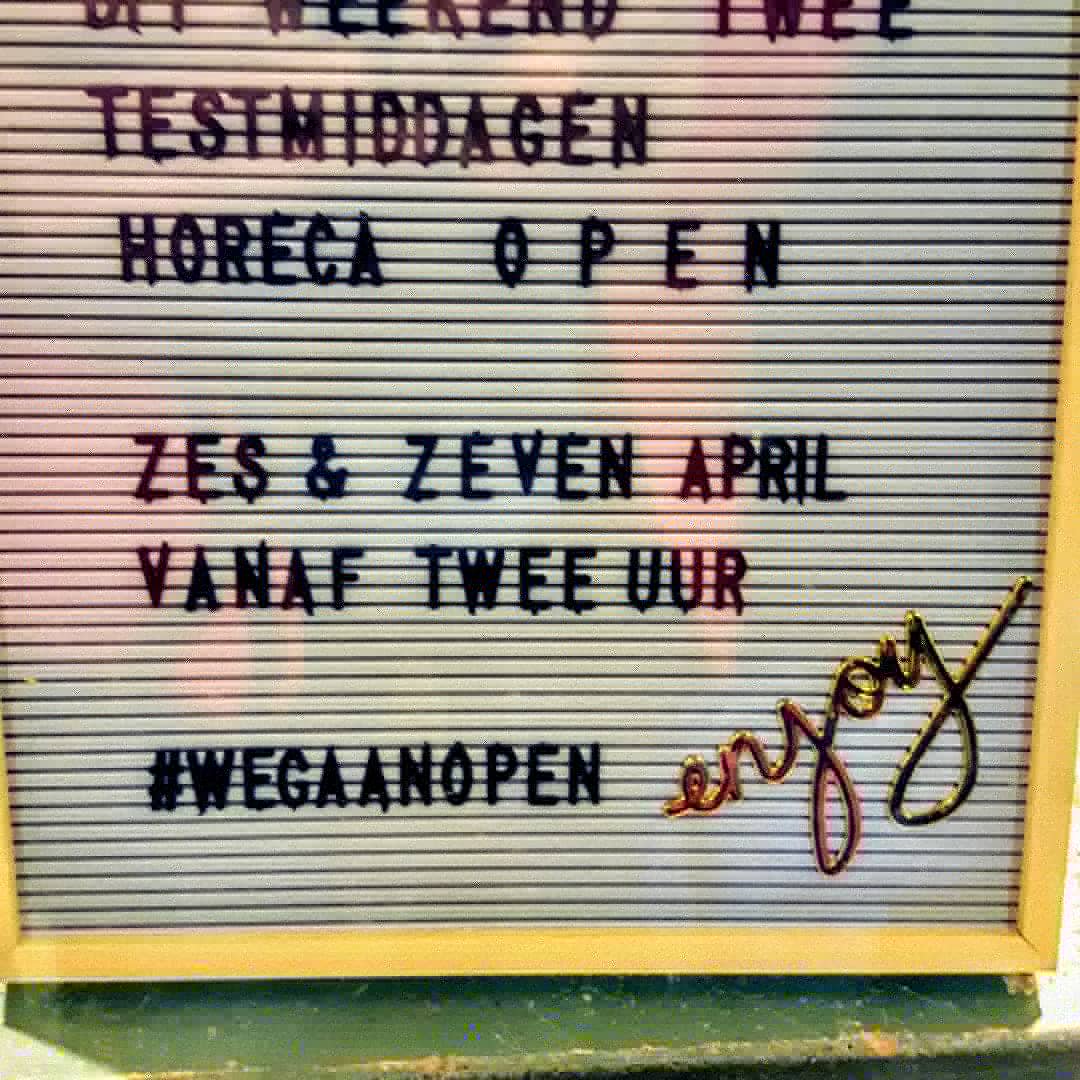 DIT WEEKEND TWEE
TESTMIDDAGEN
HORECA OPEN
ZES & ZEVEN APRIL
VANAF TWEE UUR
#WEGAANOPEN
enjoy